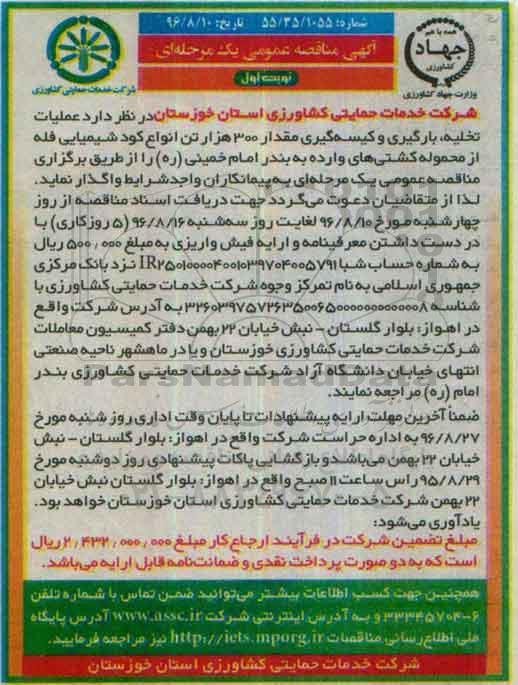 شماره: ۵۵/۳۵/۱۰۵۵ تاریخ: ۹۶/۸/۱۰
آگهی مناقصه عمومی یک مرحله‌ای
نوبت اول
همه با هم
جهاد
کشاورزی
وزارت جهاد کشاورزی
شرکت خدمات حمایتی کشاورزی
شرکت خدمات حمایتی کشاورزی استان خوزستان در نظر دارد عملیات
تخلیه، بارگیری و کیسه‌گیری مقدار ۳۰۰ هزار تن انواع کود شیمیایی فله
از محموله کشتی‌های وارده به بندر امام خمینی (ره) را از طریق برگزاری
مناقصه عمومی یک مرحله‌ای به پیمانکاران واجد شرایط واگذار نماید.
لذا از متقاضیان دعوت می‌گردد جهت دریافت اسناد مناقصه از روز
چهارشنبه مورخ ۹۶/۸/۱۰ لغایت روز سه‌شنبه ۹۶/۸/۱۶ (۵ روزکاری) با
در دست داشتن معرفینامه و ارایه فیش واریزی به مبلغ ۵۰۰,۰۰۰ ریال
به شماره حساب شبا IR۲۵۰۱۰۰۰۰۴۰۰۱۰۳۹۷۰۴۰۰۵۷۹۱ نزد بانک مرکزی
جمهوری اسلامی به نام تمرکز وجوه شرکت خدمات حمایتی کشاورزی با
شناسه ۳۲۶۰۳۹۷۵۷۲۶۳۵۰۰۶۵۰۰۰۰۰۰۰۰۰۰۰۰۸ به آدرس شرکت واقع
در اهواز: بلوار گلستان - نبش خیابان ۲۲ بهمن دفتر کمیسیون معاملات
شرکت خدمات حمایتی کشاورزی خوزستان و یا در ماهشهر ناحیه صنعتی
انتهای خیابان دانشگاه آزاد شرکت خدمات حمایتی کشاورزی بندر
امام (ره) مراجعه نمایند.
ضمناً آخرین مهلت ارایه پیشنهادات تا پایان وقت اداری روز شنبه مورخ
۹۶/۸/۲۷ به اداره حراست شرکت واقع در اهواز: بلوار گلستان - نبش
خیابان ۲۲ بهمن می‌باشد و بازگشایی پاکات پیشنهادی روز دوشنبه مورخ
۹۵/۸/۲۹ راس ساعت ۱۱ صبح واقع در اهواز: بلوار گلستان نبش خیابان
۲۲ بهمن شرکت خدمات حمایتی کشاورزی استان خوزستان خواهد بود.
یادآوری می‌شود:
مبلغ تضمین شرکت در فرآیند ارجاع کار مبلغ ۲,۴۳۲,۰۰۰,۰۰۰ ریال
است که به دو صورت پرداخت نقدی و ضمانت‌نامه قابل ارایه می‌باشد.
همچنین جهت کسب اطلاعات بیشتر می‌توانید ضمن تماس با شماره تلفن
۳۳۳۴۵۷۰۴-۶ و به آدرس اینترنتی شرکت www.assc.ir آدرس پایگاه
ملی اطلاع‌رسانی مناقصات http://iets.mporg.ir نیز مراجعه فرمایید.
شرکت خدمات حمایتی کشاورزی استان خوزستان